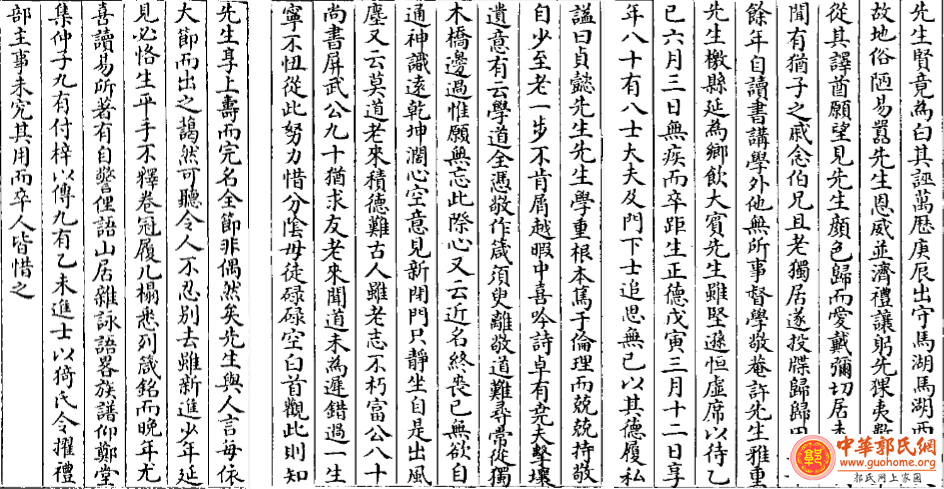 先生賢竟為白其誣萬歷庚辰出守馬湖馬湖西
故地俗陋易囂先生恩威並濟禮讓躬先猓夷數
從其譯酋願望見先生顏色歸而愛戴彌切居未
聞有猶子之戚念伯兄且老獨居遂投牒歸歸田
餘年自讀書講學外他無所事督學敬菴許先生雅重
先生檄縣延為鄉飲大賓先生雖堅遜恒虛席以待乙
已六月三日無疾而卒距生正德戊寅三月十二日享
年八十有八士大夫及門下士追思無已以其德履私
謚曰貞懿先生先生學重根本馬于倫理而兢兢持敬
自少至老一步不肯屑越暇中喜吟詩卓有堯夫擊壤
遺意有云學道全憑敬作箴須臾離敬道難尋常從獨
木橋邊過惟願無忘此際心又云近名終喪已無欲自
通神識遠乾坤濶心空意見新閉門只靜坐自是出風
塵又云莫道老來積德難古人雖老志不朽富公八十
尚書屏武公九十猶求友老來聞道未為遲錯過一生
寧不忸從此努力惜分陰毋徒碌碌空白首觀此則知
先生享上壽而完名全節非偶然矣先生與人言毎依
大節而出之藹然可聽令人不忍別去雖新進少年延
見必恪生平手不釋卷冠履几榻悉列箴銘而晚年尤
喜讀易所著有自警俚語山居雜詠語畧族譜仰鄭堂
集仲子九有付梓以傳九有乙未進士以猗氏令擢禮
部主事未究其用而卒人皆惜之
中華郭氏網
www.guohome.org
郭氏網上家園